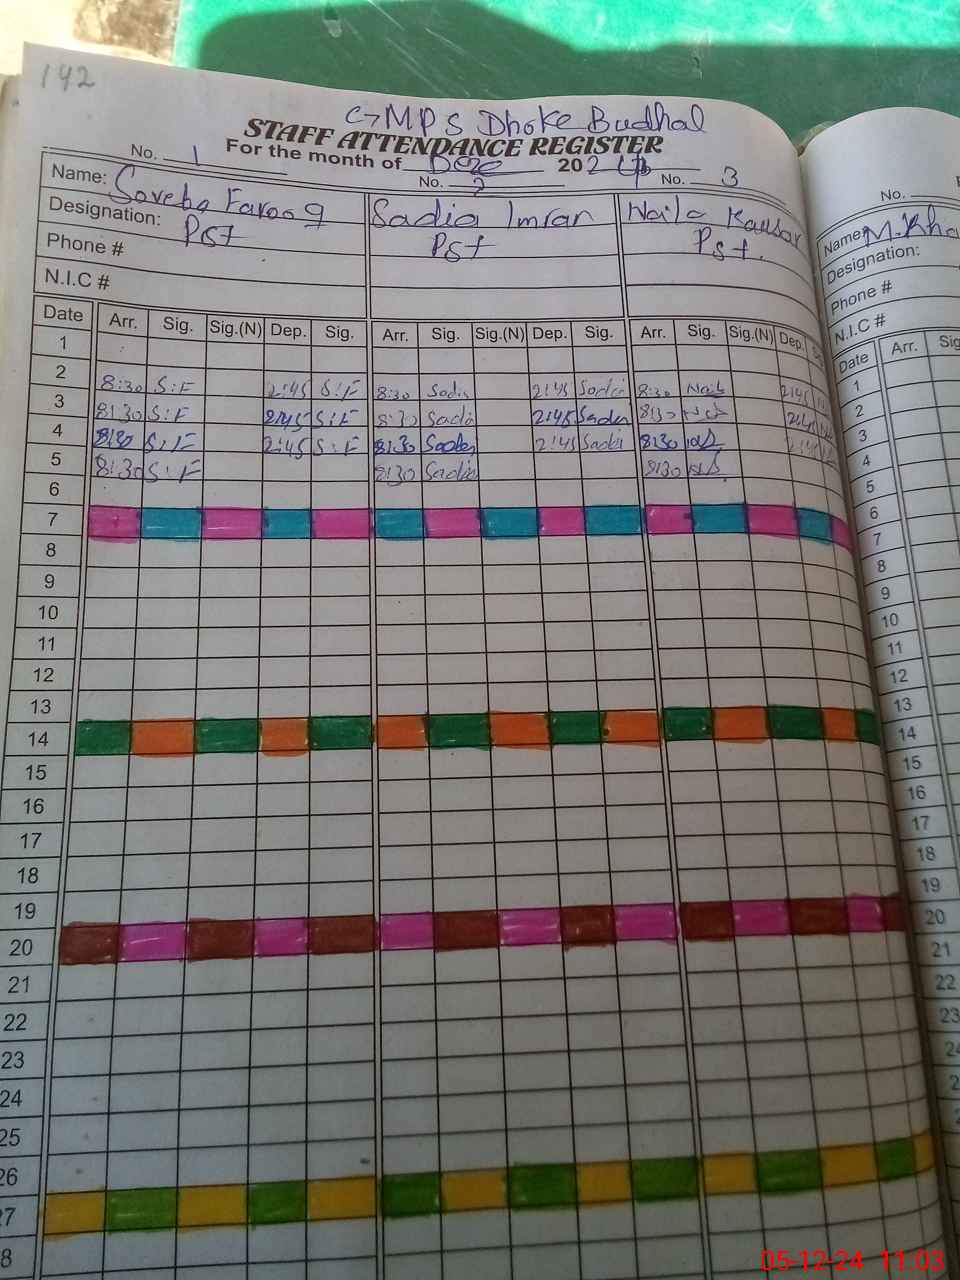 142
GMPS Dhoke Budhal
STAFF ATTENDANCE REGISTER
No. 1 For the month of Dece 2024 No. 3
No. 2
Name: Faroog Sadia Imran Naila Kausar
Designation: Pst Pst Pst.
Phone #
N.I.C #
Date Arr. Sig. Sig.(N) Dep. Sig. Arr. Sig. Sig.(N) Dep. Sig. Arr. Sig. Sig.(N) Dep.
1
2 8:30 S:F 2:45 S:F 8:30 Sadia 2:45 Sadia 8:30 Naila 2:45
3 8:30 S:F 2:45 S:F 8:30 Sadia 2:45 Sadia 8:30 2:45
4 8:30 S:F 2:45 S:F 8:30 Sadia 2:45 Sadia 8:30 2:45
5 8:30 S:F 8:30 Sadia 8:30
6
7
8
9
10
11
12
13
14
15
16
17
18
19
20
21
22
23
24
25
26
27
8
No.
Name: M. Kha
Designation:
Phone #
N.I.C #
Date Arr. Sig
1
2
3
4
5
6
7
8
9
10
11
12
13
14
15
16
17
18
19
20
21
22
23
24
05-12-24 11:03